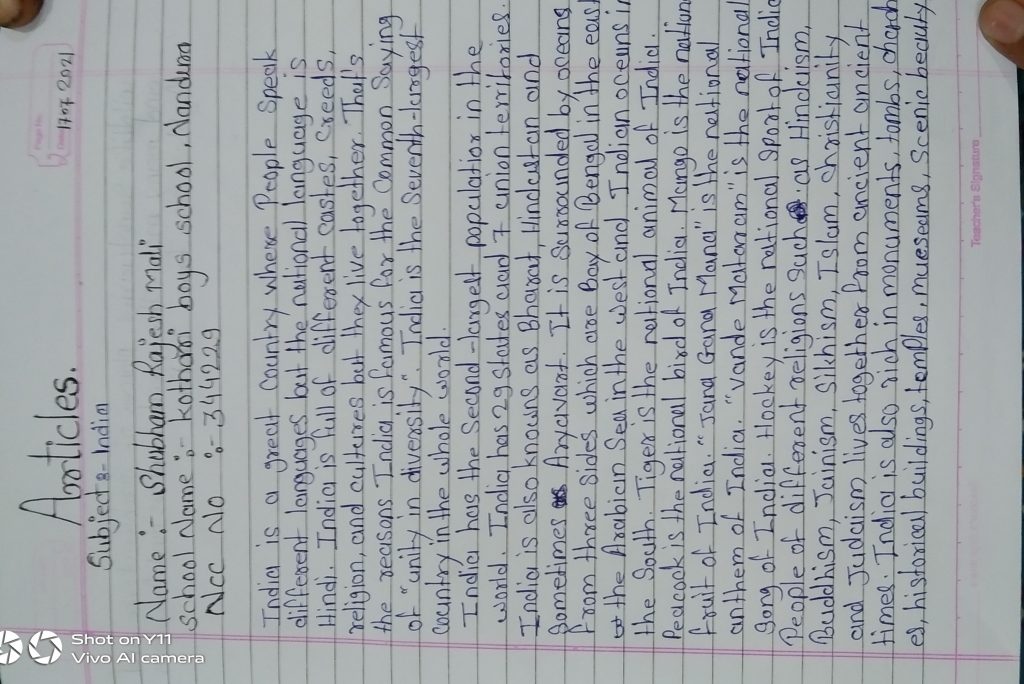 Page No.
Date 17 07 2021
Articles.
Subject :- India
Name :- Shubham Rajesh Mali
School Name :- Kothari boys school, Nandura
NCC No :- 344229
India is a great Country where People Speak
different languages but the national language is
Hindi. India is full of different castes, Creeds,
religion, and cultures but they live together. That's
the reasons India is famous for the common Saying
of "unity in diversity". India is the Seventh-largest
Country in the whole world.
India has the Second-largest population in the
world. India has 29 states and 7 union territories.
India is also knowns as Bharat, Hindustan and
Sometimes Aryavart. It is Surrounded by oceans
from three sides which are Bay of Bengal in the east
the Arabian Sea in the west and Indian oceans in
the South. Tiger is the national animal of India.
Peacock is the national bird of India. Mango is the national
fruit of India. "Jana Gana Mana" is the national
anthem of India. "Vande Mataram" is the national
song of India. Hockey is the national sport of India
People of different religions such as Hinduism,
Buddhism, Jainism, Sikhism, Islam, Christianity
and Judaism lives together from ancient ancient
times. India is also rich in monuments, tombs, church
es, historical buildings, temples, museums, Scenic beauty
Teacher's Signature
Shot on Y11
Vivo AI camera